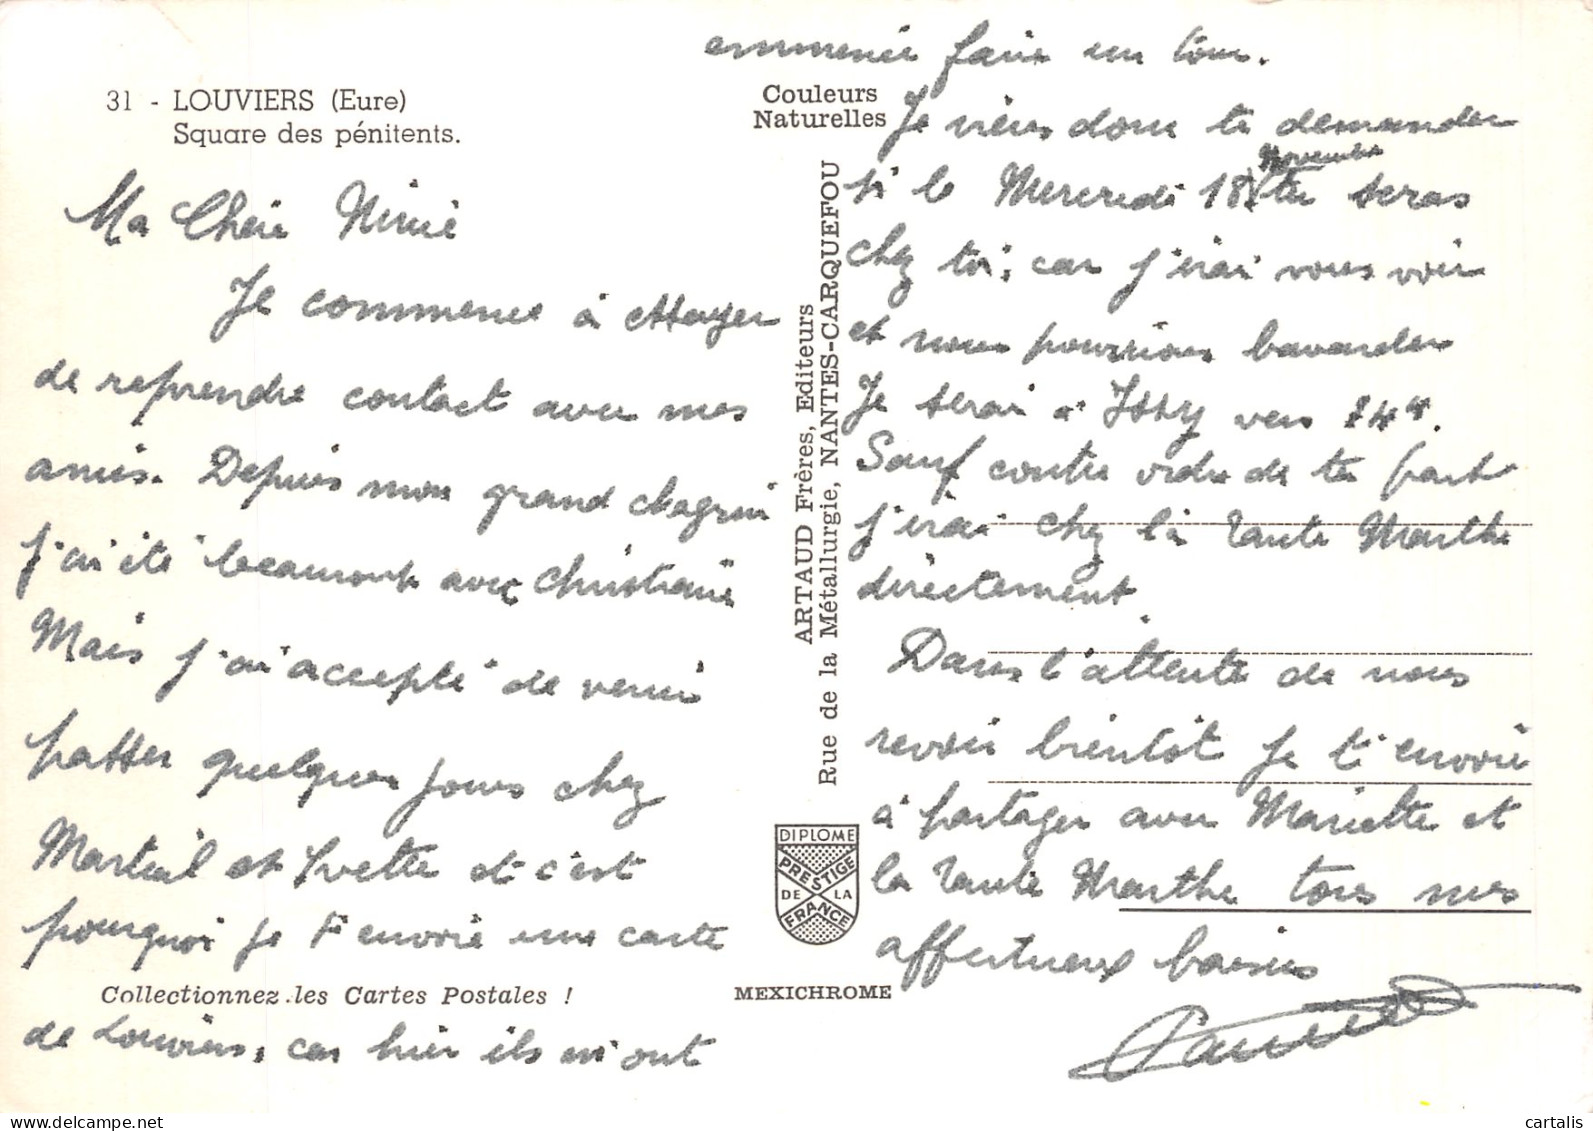 31 - LOUVIERS (Eure)
Square des pénitents.
Ma Chère Mimie
Je commence à essayer
de reprendre contact avec mes
amies. Depuis mon grand chagrin
j'ai été beaucoup avec Christiane
Mais j'ai accepté de venir
passer quelques jours chez
et Yvette et c'est
pourquoi je t'envoie une carte
Collectionnez les Cartes Postales !
de Louviers, car hier ils m'ont
emmenée faire un tour.
Couleurs
Naturelles
ARTAUD Frères, Editeurs
Rue de la Métallurgie, NANTES-CARQUEFOU
DIPLOME
PRESTIGE
DE LA
FRANCE
MEXICHROME
Je viens donc te demander
si le Mercredi 18 Novembre tu seras
chez toi, car j'irai vous voir
et nous pourrions bavarder
Je serai à Issy vers
Sauf contre ordre de ta part
j'irai chez la Tante Marthe
directement
Dans l'attente de nous
revoir bientôt je t'envoie
à partager avec Mariette et
la Tante Marthe tous mes
affectueux baisers
cartalis